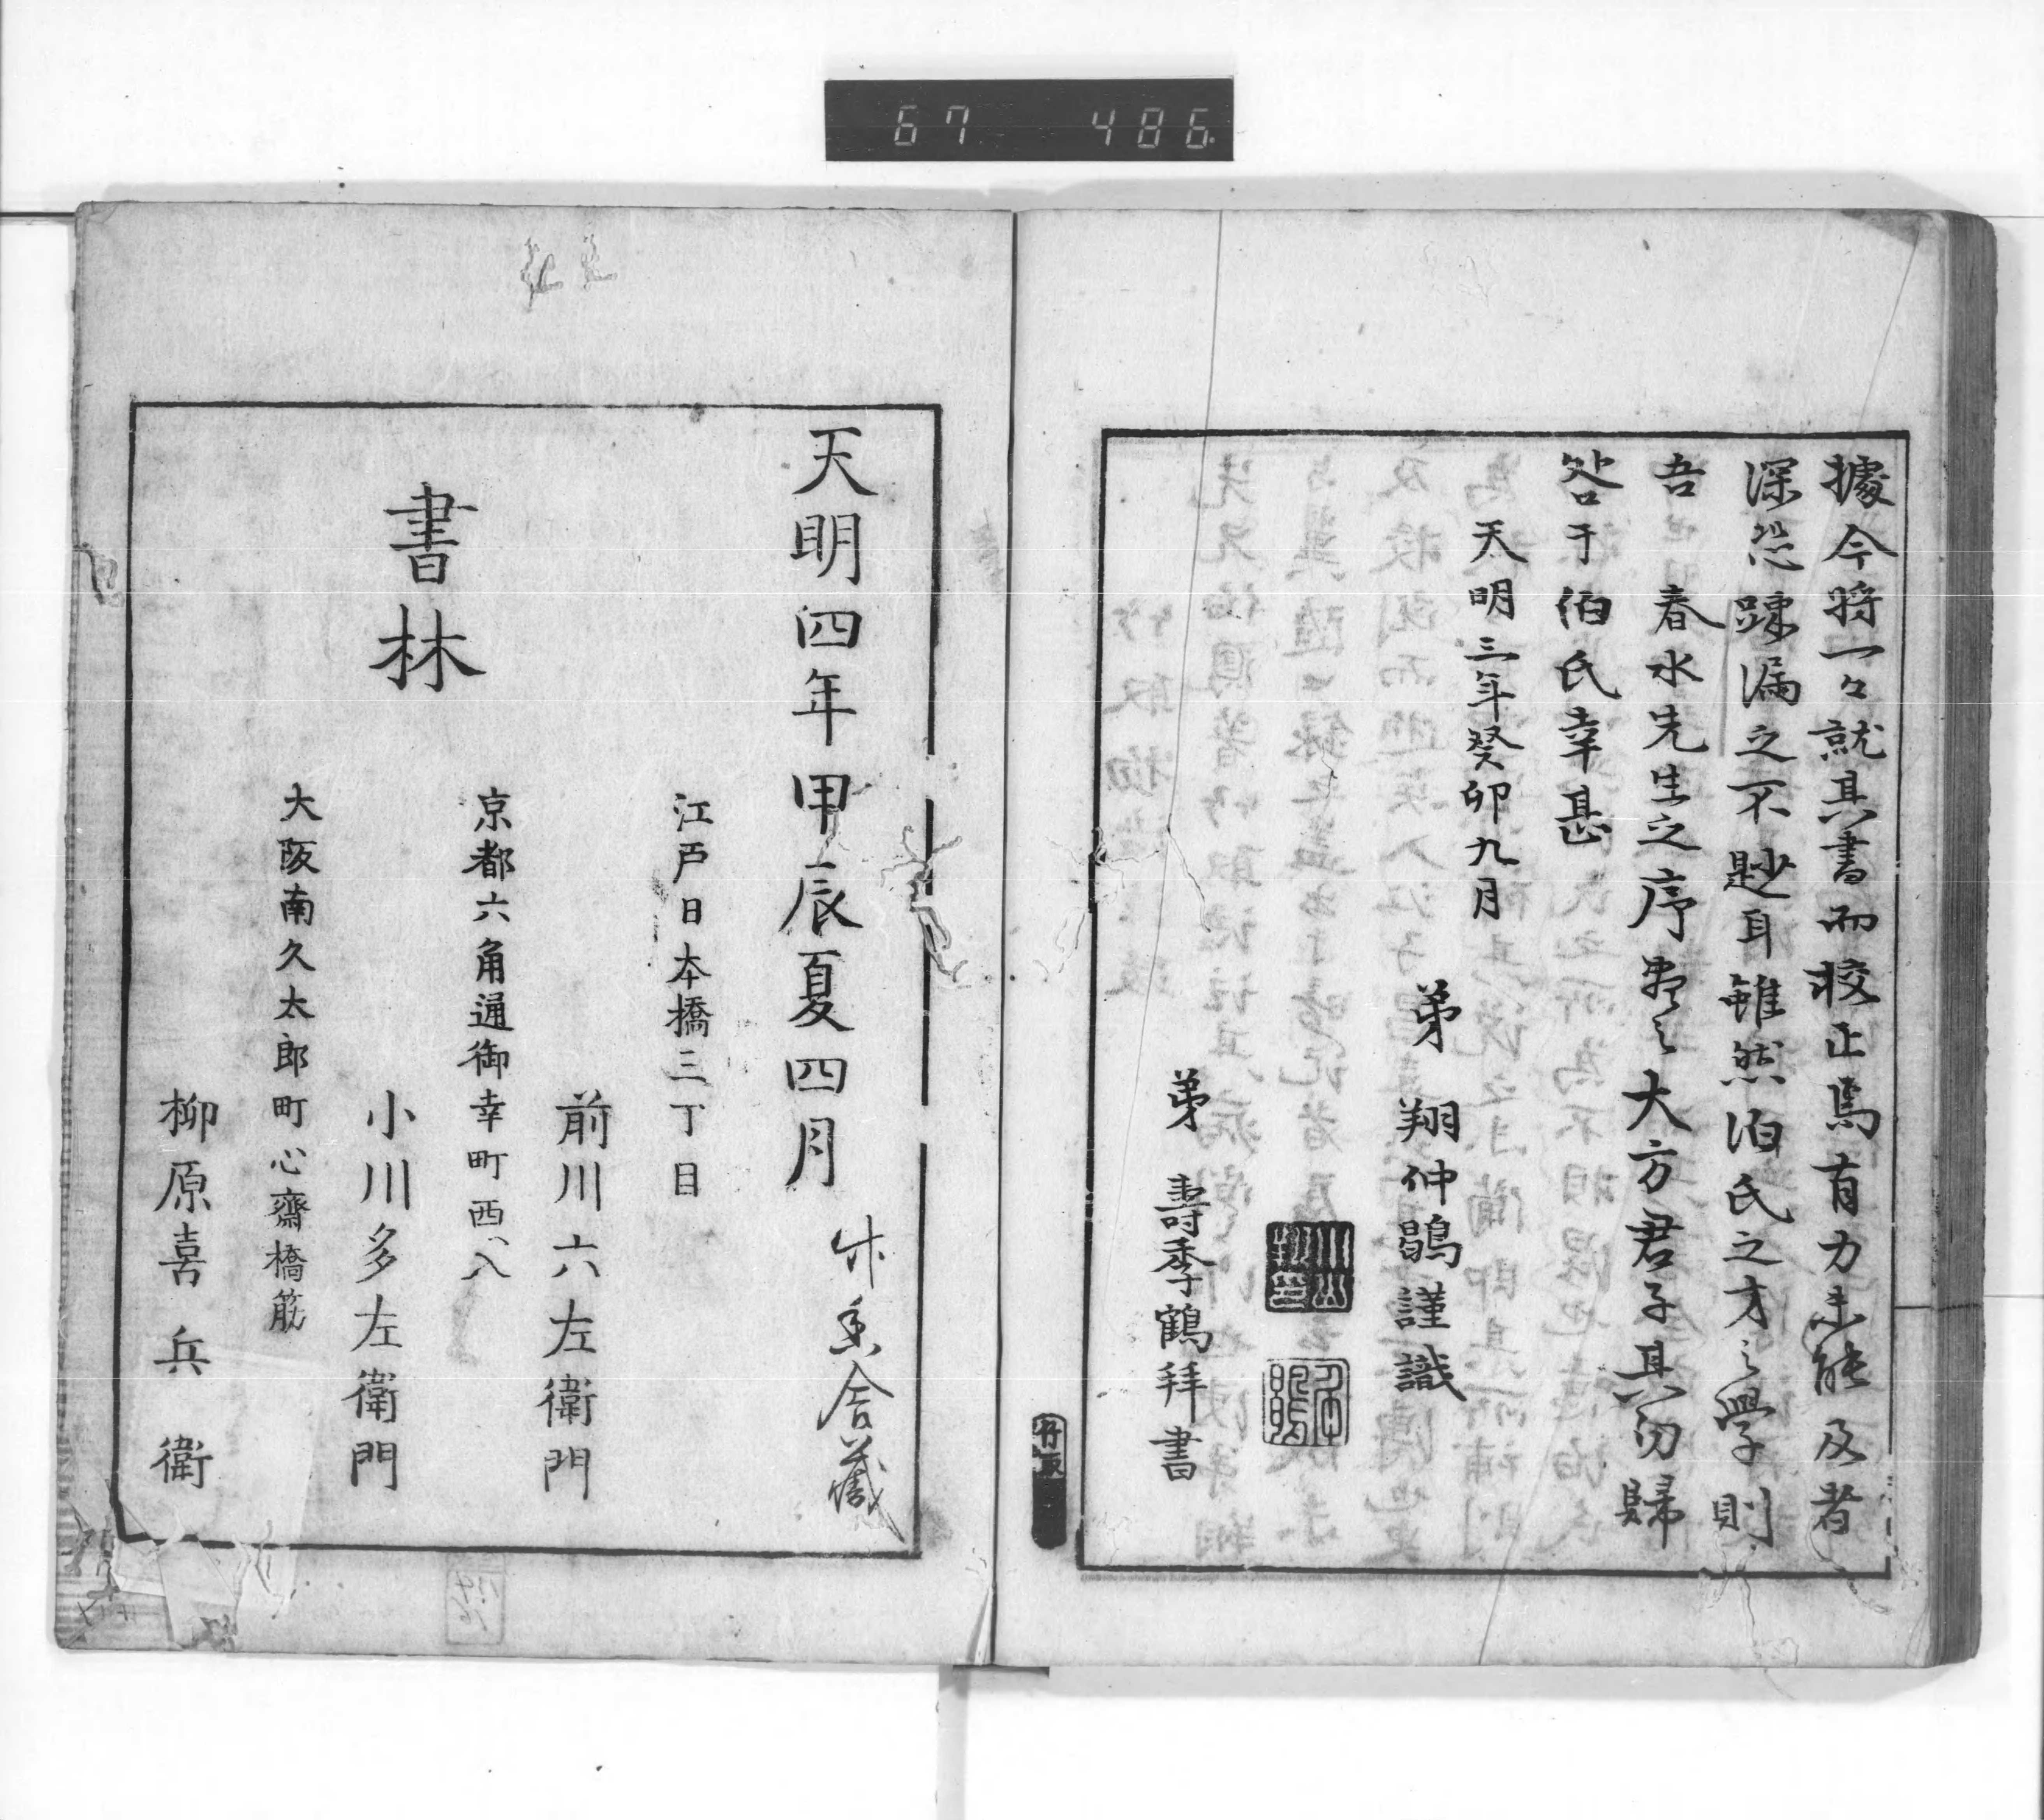 67 486
據今將一々就其書而挍正焉有力未能及者
深恐踈漏之不尟耳雖然伯氏之才之學則
吾春水先生之序盡之大方君子其勿歸
咎于伯氏幸甚
天明三年癸卯九月
弟 翔仲鶡謹識
弟 壽季鶴拜書
天明四年甲辰夏四月
江戸日本橋三丁目
前川六左衛門
京都六角通御幸町西ヘ入
小川多左衛門
書林
大阪南久太郎町心齋橋筋
柳原喜兵衛